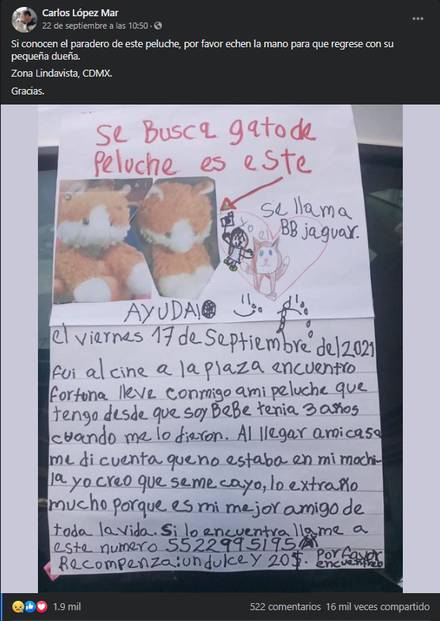 Carlos López Mar
22 de septiembre a las 10:50 ·
Si conocen el paradero de este peluche, por favor echen la mano para que regrese con su
pequeña dueña.
Zona Lindavista, CDMX.
Gracias.
Se Busca gato de
Peluche es este
Se llama
BB jaguar.
yo el
AYUDA
el viernes 17 de Septiembre del 2021
fui al cine a la plaza encuentro
fortona lleve conmigo ami peluche que
tengo desde que soy BeBe tenia 3 años
cuando me lo dieron. Al llegar amicasa
me di cuenta que no estaba en mi mochi-
la yo creo que seme cayo, lo extraño
mucho porque es mi mejor amigo de
toda la vida. Si lo encuentra llame a
este numero 5522995195
Recompenza: un dulce y 20$. Por favor
encuentrelo
1.9 mil
522 comentarios 16 mil veces compartido